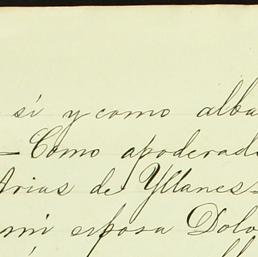 sí y como alba
– Como apoderad
Arias de Yllanes –
mi esposa Dolo